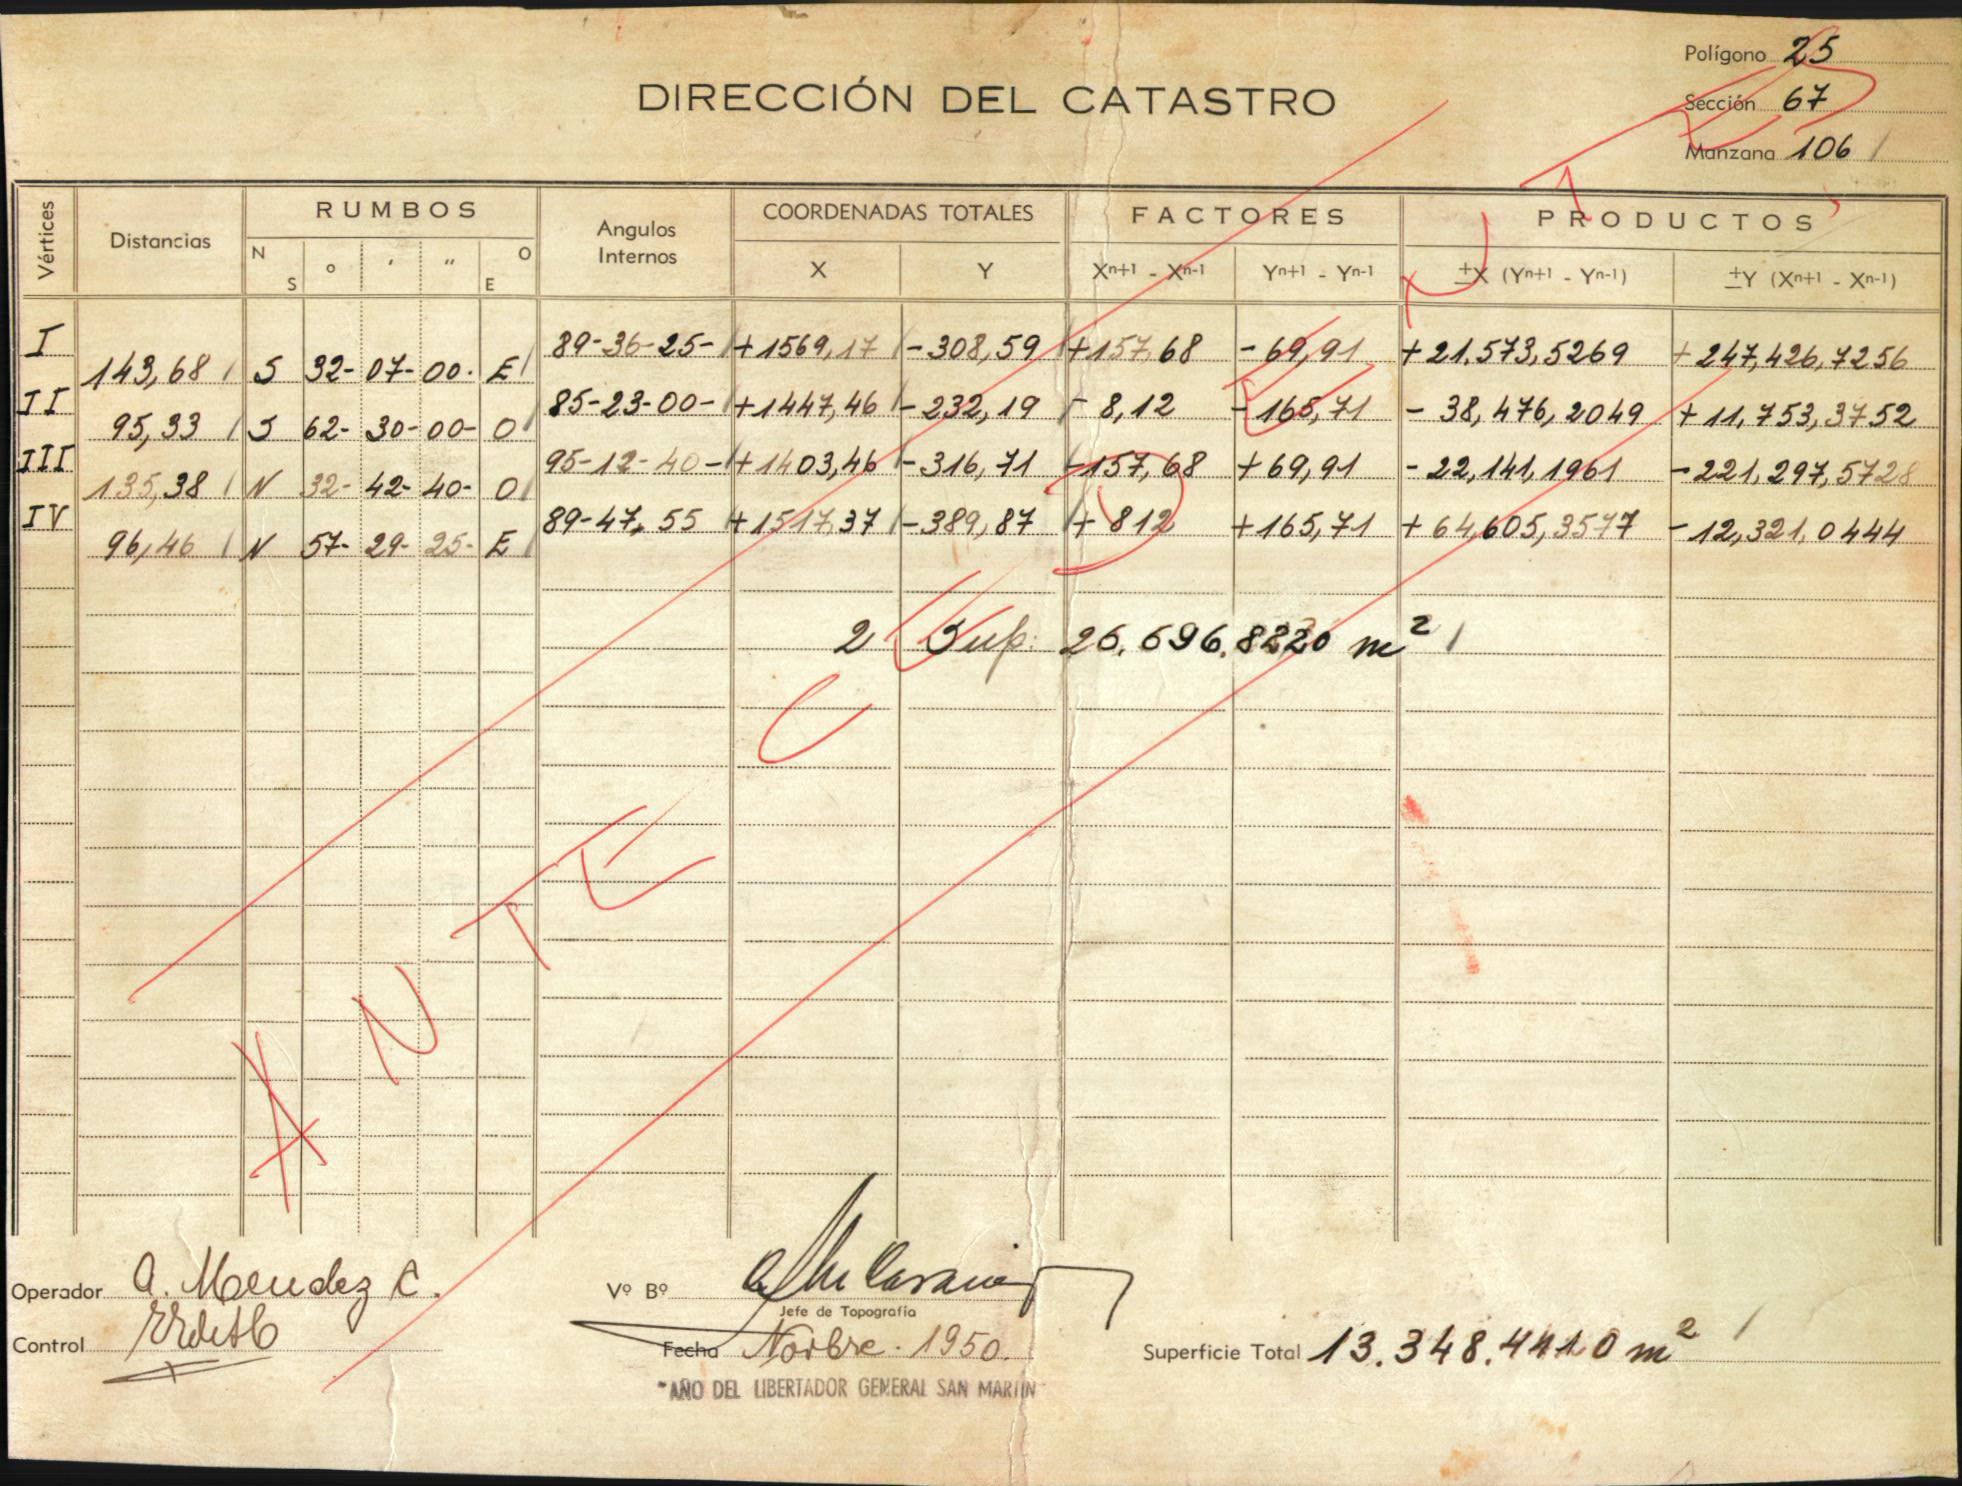 Polígono 25
DIRECCIÓN DEL CATASTRO
Sección 67
Manzana 106
Vértices Distancias RUMBOS Angulos Internos COORDENADAS TOTALES FACTORES PRODUCTOS
N S o ' " O E X Y Xn+1 - Xn-1 Yn+1 - Yn-1 ±X (Yn+1 - Yn-1) ±Y (Xn+1 - Xn-1)
I 89-36-25- +1569,17 -308,59 +157,68 -69,91 +21.573,5269 +247,426,7256
143,68 S 32- 07- 00. E
II 85-23-00- +1447,46 -232,19 - 8,12 -165,71 - 38,476,2049 +11,753,3752
95,33 S 62- 30- 00- O
III 95-12-40- +1403,46 -316,71 -157,68 +69,91 - 22,141,1961 -221,297,5728
135,38 N 32- 42- 40- O
IV 89-47, 55 +1517,37 -389,87 + 812 +165,71 + 64,605,3577 - 12,321,0444
96,46 N 57- 29- 25- E
2 Sup: 26.696.8220 m²
ANTE
Operador A. Mendez C.
Vº Bº
Jefe de Topografía
Control
Fecha Novbre. 1950.
Superficie Total 13.348.4110 m²
"AÑO DEL LIBERTADOR GENERAL SAN MARTIN"